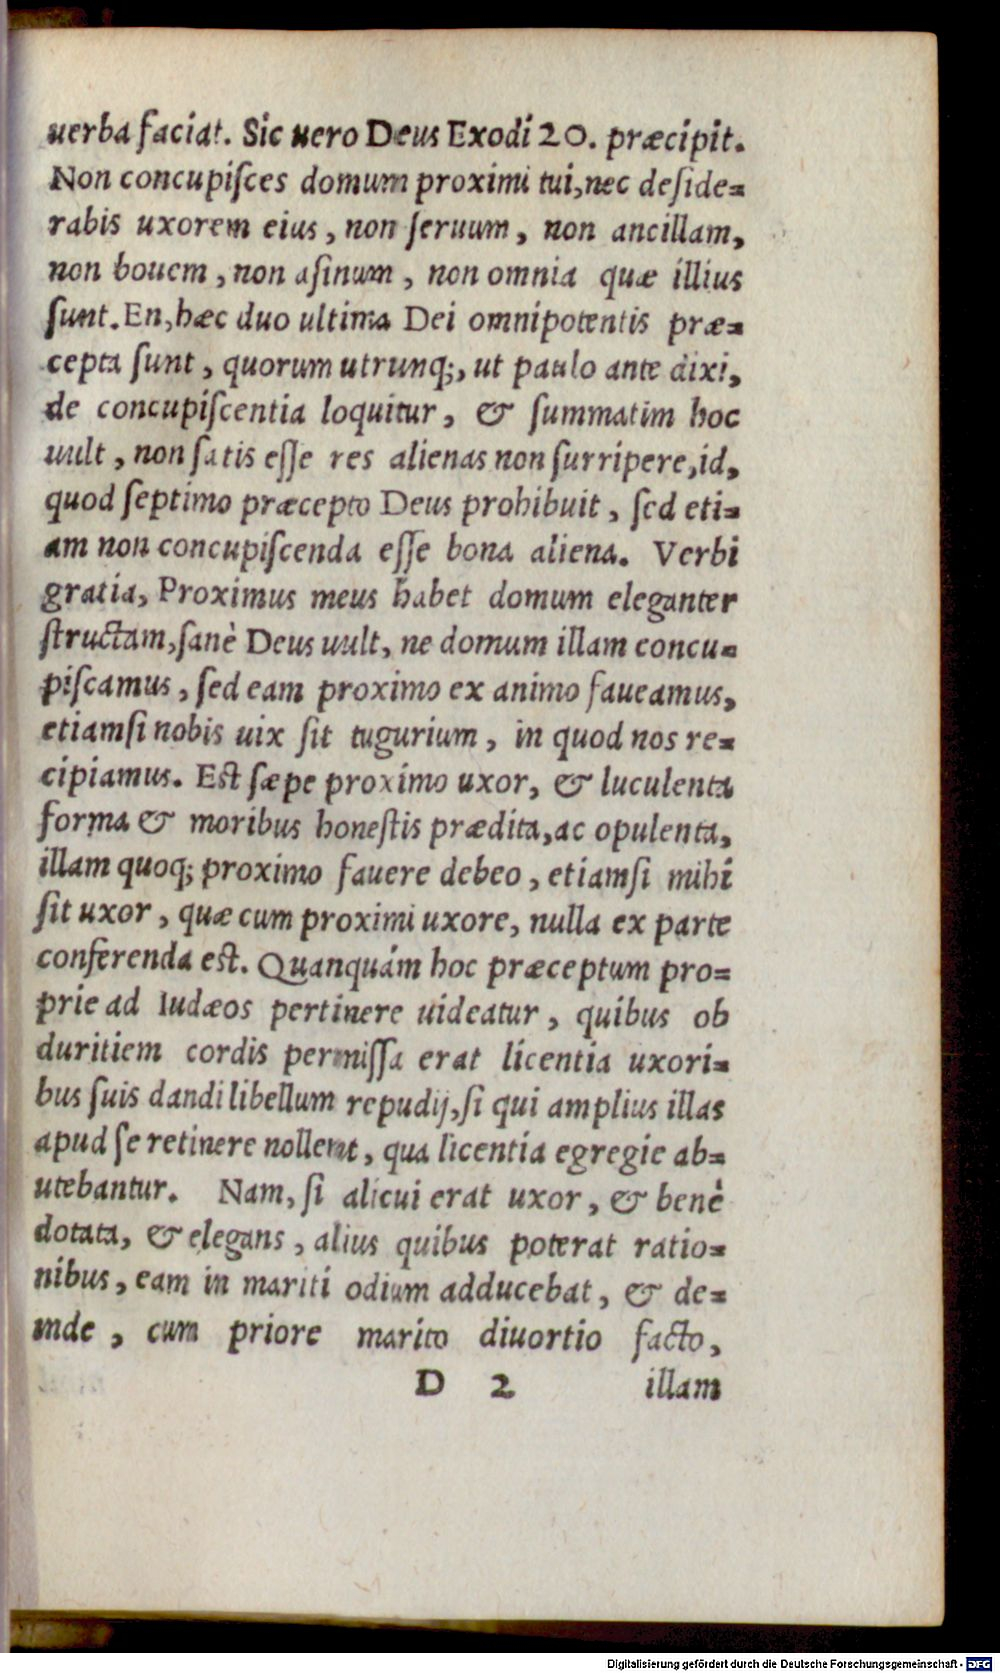 uerba faciat. Sic uero Deus Exodi 20. præcipit.
Non concupiſces domum proximi tui, nec deſide=
rabis uxorem eius, non ſeruum, non ancillam,
non bouem, non aſinum, non omnia quæ illius
ſunt. En, hæc duo ultima Dei omnipotentis præ=
cepta ſunt, quorum utrunq;, ut paulo ante dixi,
de concupiſcentia loquitur, & ſummatim hoc
uult, non ſatis eſſe res alienas non ſurripere, id,
quod ſeptimo præcepto Deus prohibuit, ſed eti=
am non concupiſcenda eſſe bona aliena. Verbi
gratia, Proximus meus habet domum eleganter
ſtructam, ſanè Deus uult, ne domum illam concu=
piſcamus, ſed eam proximo ex animo faueamus,
etiamſi nobis uix ſit tugurium, in quod nos re=
cipiamus. Est ſæpe proximo uxor, & luculenta
forma & moribus honeſtis prædita, ac opulenta,
illam quoq; proximo fauere debeo, etiamſi mihi
ſit uxor, quæ cum proximi uxore, nulla ex parte
conferenda est. Quanquám hoc præceptum pro=
prie ad Iudæos pertinere uideatur, quibus ob
duritiem cordis permiſſa erat licentia uxori=
bus ſuis dandi libellum repudij, ſi qui amplius illas
apud ſe retinere nollent, qua licentia egregie ab=
utebantur. Nam, ſi alicui erat uxor, & benè
dotata, & elegans, alius quibus poterat ratio=
nibus, eam in mariti odium adducebat, & de=
inde, cum priore marito diuortio facto,
D 2 illam
Digitalisierung gefördert durch die Deutsche Forschungsgemeinschaft - DFG